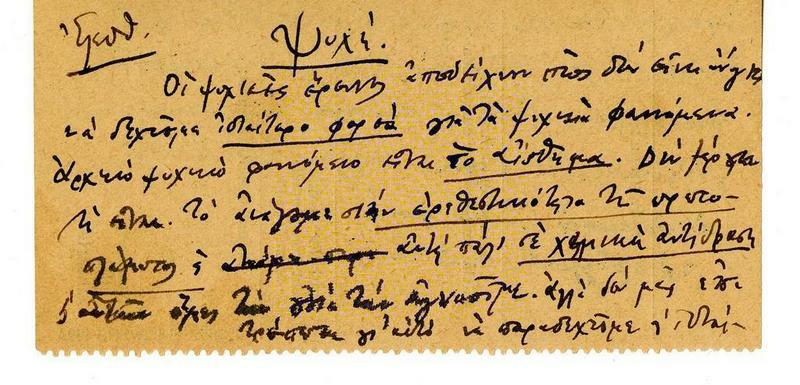 Ἐρεθ. Ψυχή.
Οἱ ψυχικὲς ἔρευνες ἀποδείχνουν πὼς δὲν εἶναι ἀνάγκη
νὰ δεχτοῦμε ἰδιαίτερο φορέα γιὰ τὰ ψυχικὰ φαινόμενα.
Ἀρχικὸ ψυχικὸ φαινόμενο εἶναι τὸ αἴσθημα. Δὲν ξέρουμε
τί εἶναι. Τὸ ἀνάγομε στὴν ἐρεθιστικότητα τοῦ πρωτο-
πλάσματος αὐτὴ πάλι σὲ χημικὴ ἀντίδραση
ὅμως τὴν ἀγνοοῦμε. ἀλλὰ δὲν μᾶς
γι' αὐτὸ νὰ παραδεχτοῦμε